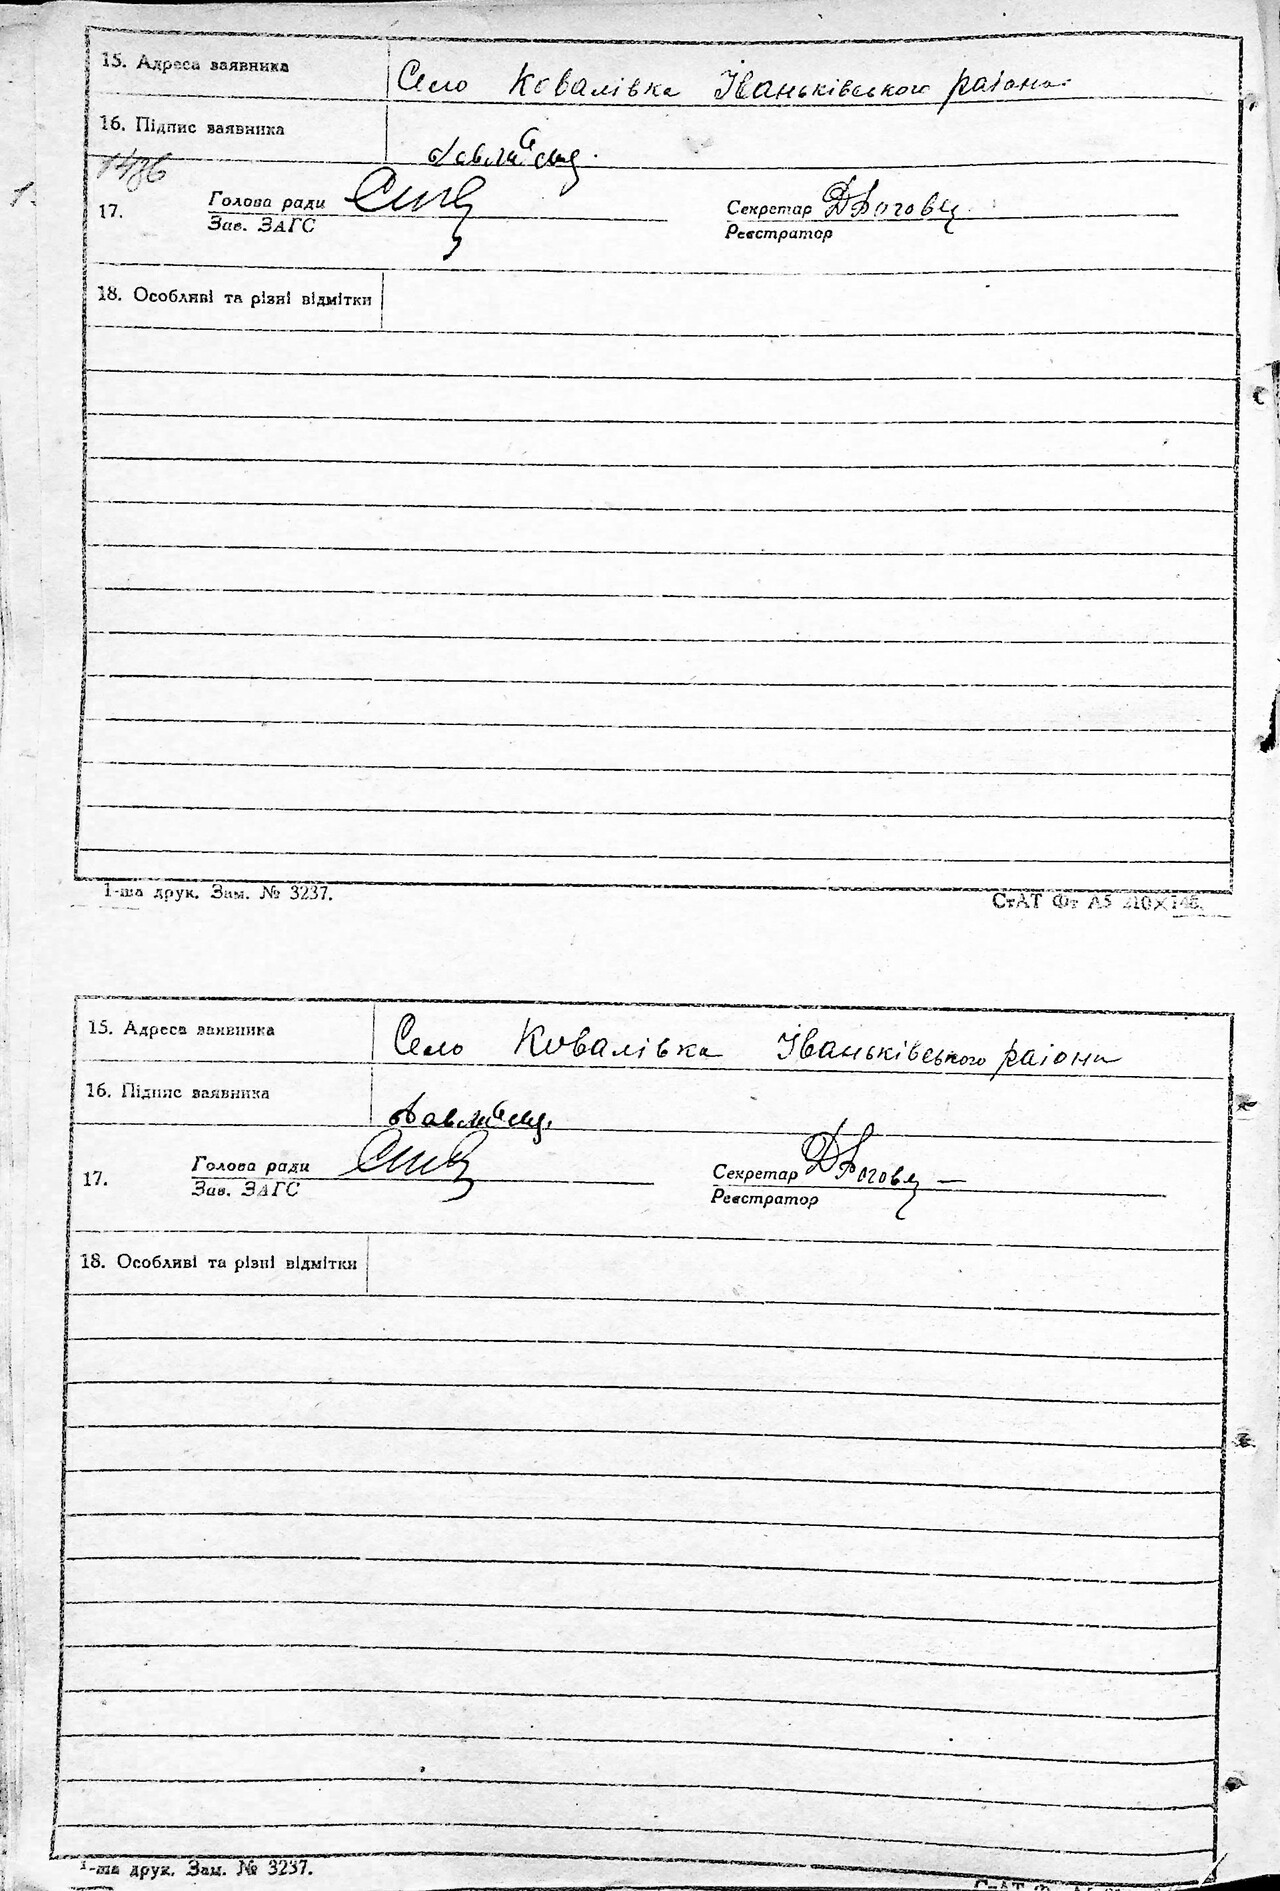 15. Адреса заявника Село Ковалівка Іваньківського района
16. Підпис заявника
1486
17. Голова ради Секретар
Зав. ЗАГС Реєстратор
18. Особливі та різні відмітки
1-ша друк. Зам. № 3237. СтАТ Фт А5 210×148.
15. Адреса заявника Село Ковалівка Іваньківського района
16. Підпис заявника
17. Голова ради Секретар
Зав. ЗАГС Реєстратор
18. Особливі та різні відмітки
1-ша друк. Зам. № 3237.